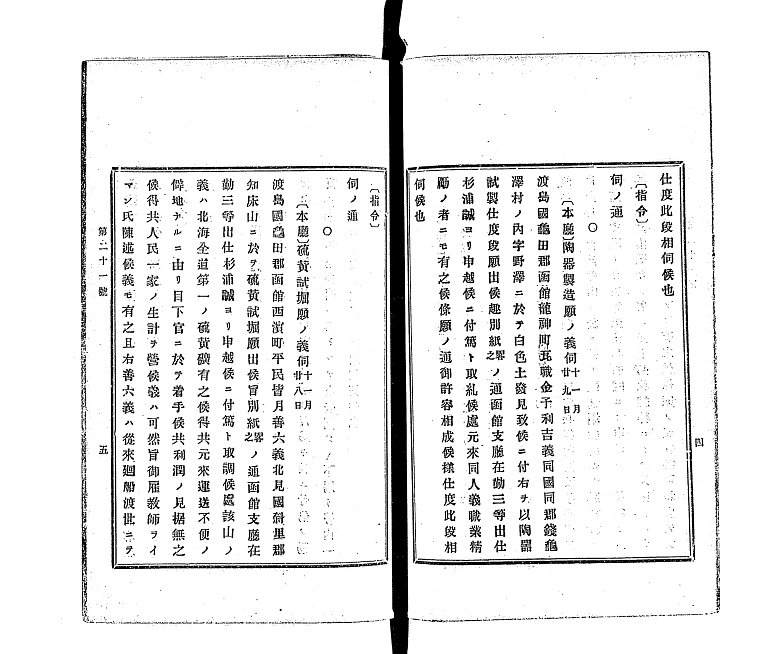 仕度此段相伺候也
〔指令〕
伺ノ通
○
〔本廳〕陶器製造願ノ義伺十一月廿九日
渡島國龜田郡函館龍神町瓦職金子利吉義同國同郡錢龜
澤村ノ內字野澤ニ於テ白色土發見致候ニ付右ヲ以陶器
試製仕度段願出候趣別紙略之ノ通函館支廳在勤三等出仕
杉浦誠ヨリ申越候ニ付篤ト取糺候處元來同人義職業精
勵ノ者ニモ有之候條願ノ通御許容相成候樣仕度此段相
伺候也
四
〔指令〕
伺ノ通
○
〔本廳〕硫黃試堀願ノ義伺十一月廿八日
渡島國龜田郡函館西濱町平民皆月善六義北見國斜里郡
知床山ニ於テ硫黃試堀願出候旨別紙略之ノ通函館支廳在
勤三等出仕杉浦誠ヨリ申越候ニ付篤ト取調候處該山ノ
義ハ北海全道第一ノ硫黃礦有之候得共元來運送不便ノ
僻地ナルニ由リ目下官ニ於テ着手候共利潤ノ見据無之
候得共人民一家ノ生計ヲ營候義ハ可然旨御雇敎師ライ
マン氏陳述候義モ有之且右善六義ハ從來廻船渡世ニテ
第二十一號
五